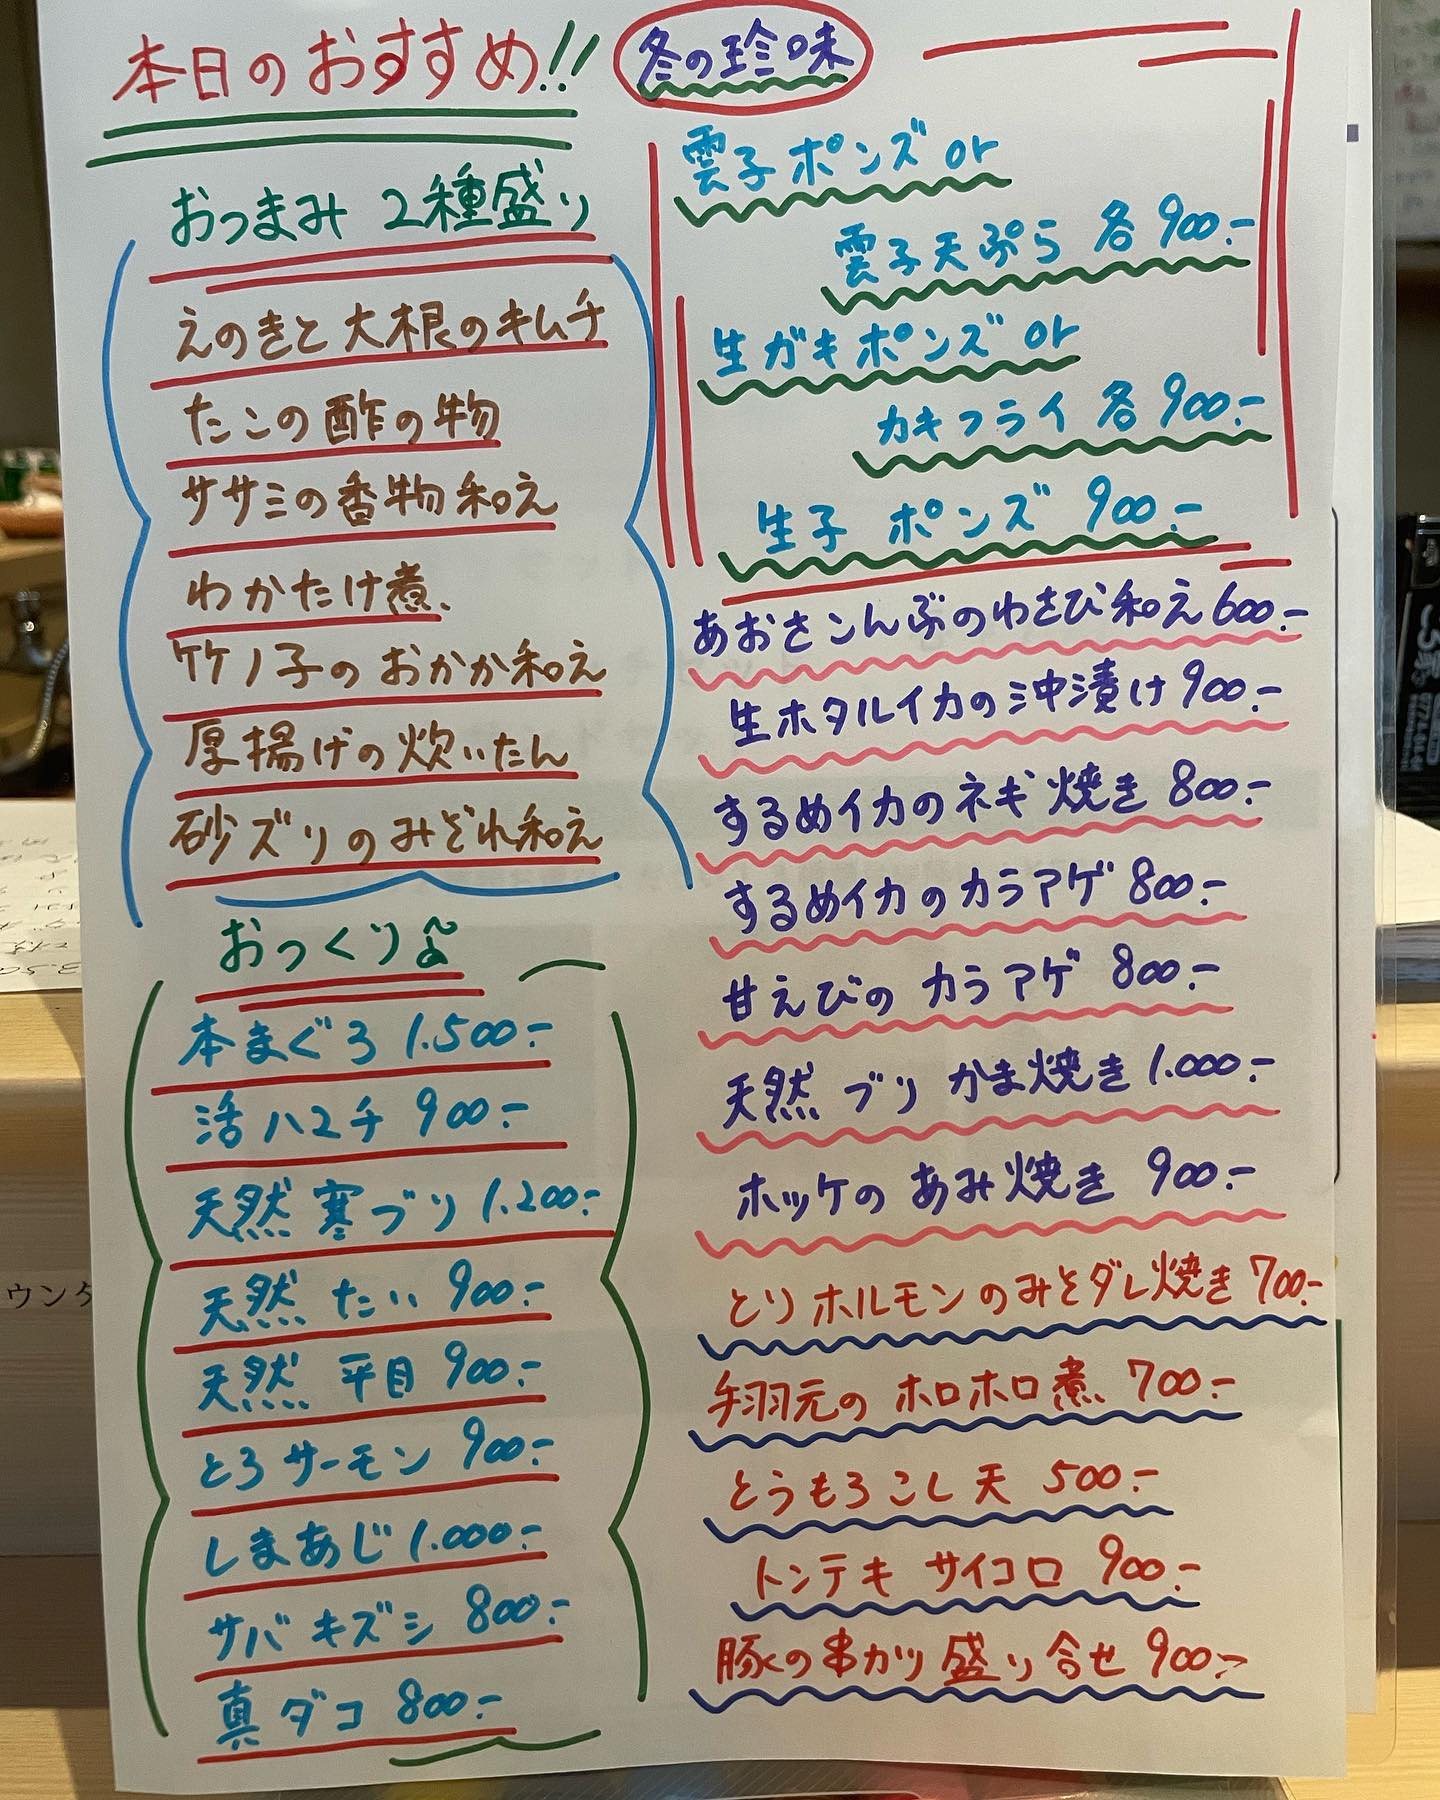 本日のおすすめ!!
おつまみ 2種盛り
えのきと大根のキムチ
たこの酢の物
ササミの香物和え
わかたけ煮
竹ノ子のおかか和え
厚揚げの炊いたん
砂ズリのみぞれ和え
おつくり
本まぐろ 1.500-
活ハマチ 900-
天然 寒ブリ 1.200-
天然 たい 900-
天然 平目 900-
とろサーモン 900-
しまあじ 1.000-
サバ キズシ 800-
真ダコ 800-
冬の珍味
雲子ポンズ or
雲子天ぷら 各900-
生ガキポンズ or
カキフライ 各900-
生子 ポンズ 900-
あおさこんぶのわさび和え600-
生ホタルイカの沖漬け900-
するめイカのネギ焼き 800-
するめイカのカラアゲ 800-
甘えびの カラアゲ 800-
天然 ブリ かま焼き 1.000-
ホッケの あみ焼き 900-
とりホルモンのみそダレ焼き 700-
手羽元の ホロホロ煮 700-
とうもろこし天 500-
トンテキ サイコロ 900-
豚の串カツ盛り合せ 900-
ウンタ